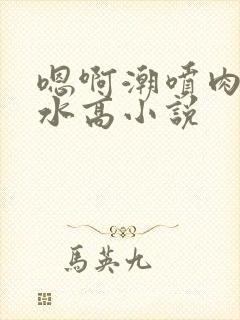 嗯啊潮噴肉
水高小説
馬英九